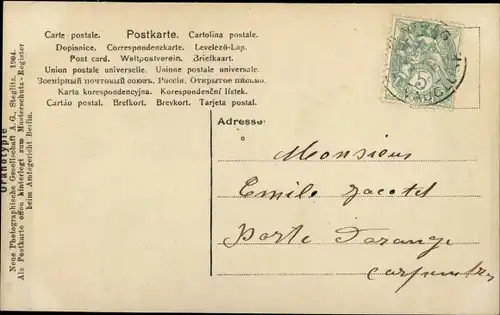 Carte postale. Postkarte. Cartolina postale.
Dopisnice. Correspondenzkarte. Levelező-Lap.
Post card. Weltpostverein. Briefkaart.
Union postale universelle. Unione postale universale.
Всемірный почтовый союзъ. Россія. Открытое письмо.
Karta korespondencyjna. Korespondenční lístek.
Cartão postal. Brefkort. Brevkort. Tarjeta postal.
5
Adresse
Monsieur
Emile Jacotet
Porte d'orange
Carpentras
Uranotypie
Neue Photographische Gesellschaft A.G., Steglitz, 1904.
Als Postkarte offen hinterlegt zum Musterschutz-Register
beim Amtsgericht Berlin.